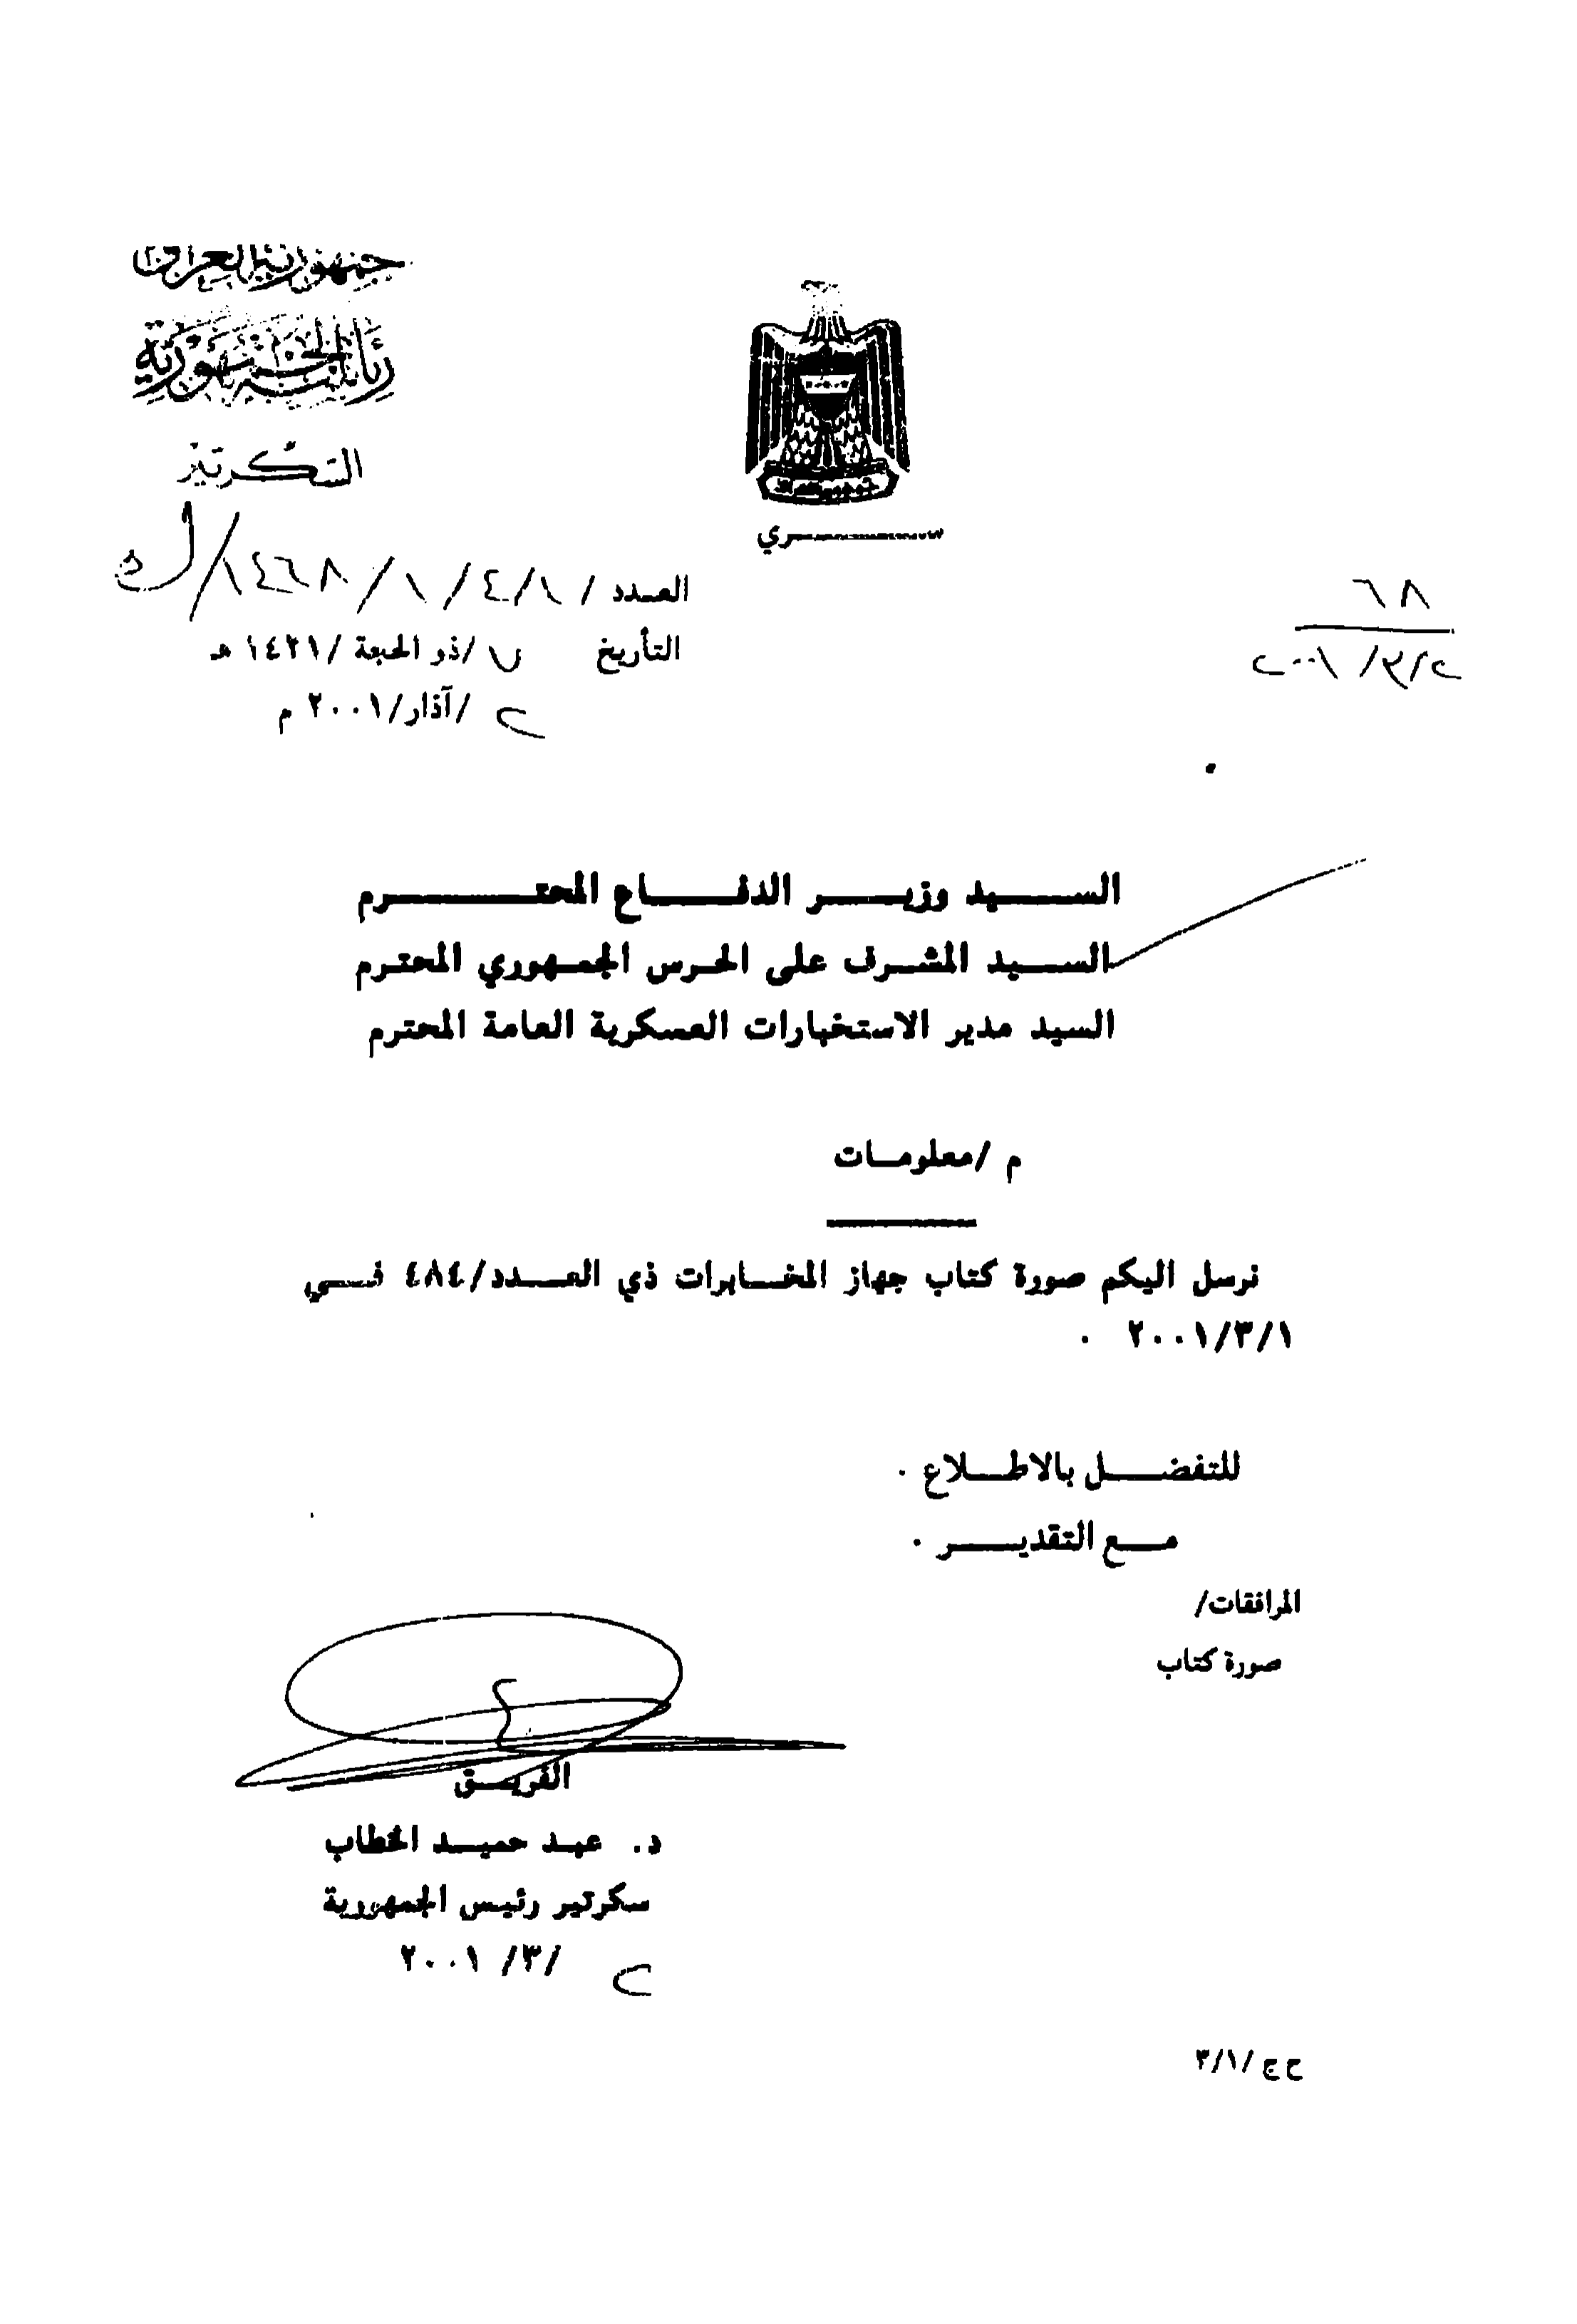 جمهورية العراق
رئاسة الجمهورية
السكرتير
ســري
العدد / ١/٤/١/١٤٦٨/ك
التأريخ ٧ /ذو الحجة /١٤٢١ هـ
٢ /آذار/٢٠٠١ م
٦٨
٢٠٠١/٣/٢
الســيد وزيــر الدفــاع المحتــرم
الســيد المشـرف على الحـرس الجمـهوري المحتـرم
السيد مدير الاستخبارات العسكرية العامة المحترم
م /معلومـات
نرسل اليكم صورة كتاب جهاز المخـابرات ذي العــدد/٤٨٤ فــي
٢٠٠١/٣/١ .
للتفضــل بالاطــلاع .
مــع التقديــر .
المرافقات/
صورة كتاب
الفريــق
د. عبـد حميـد الخطاب
سكرتير رئيس الجمهورية
٢ /٣/ ٢٠٠١
ح ج /٣/١